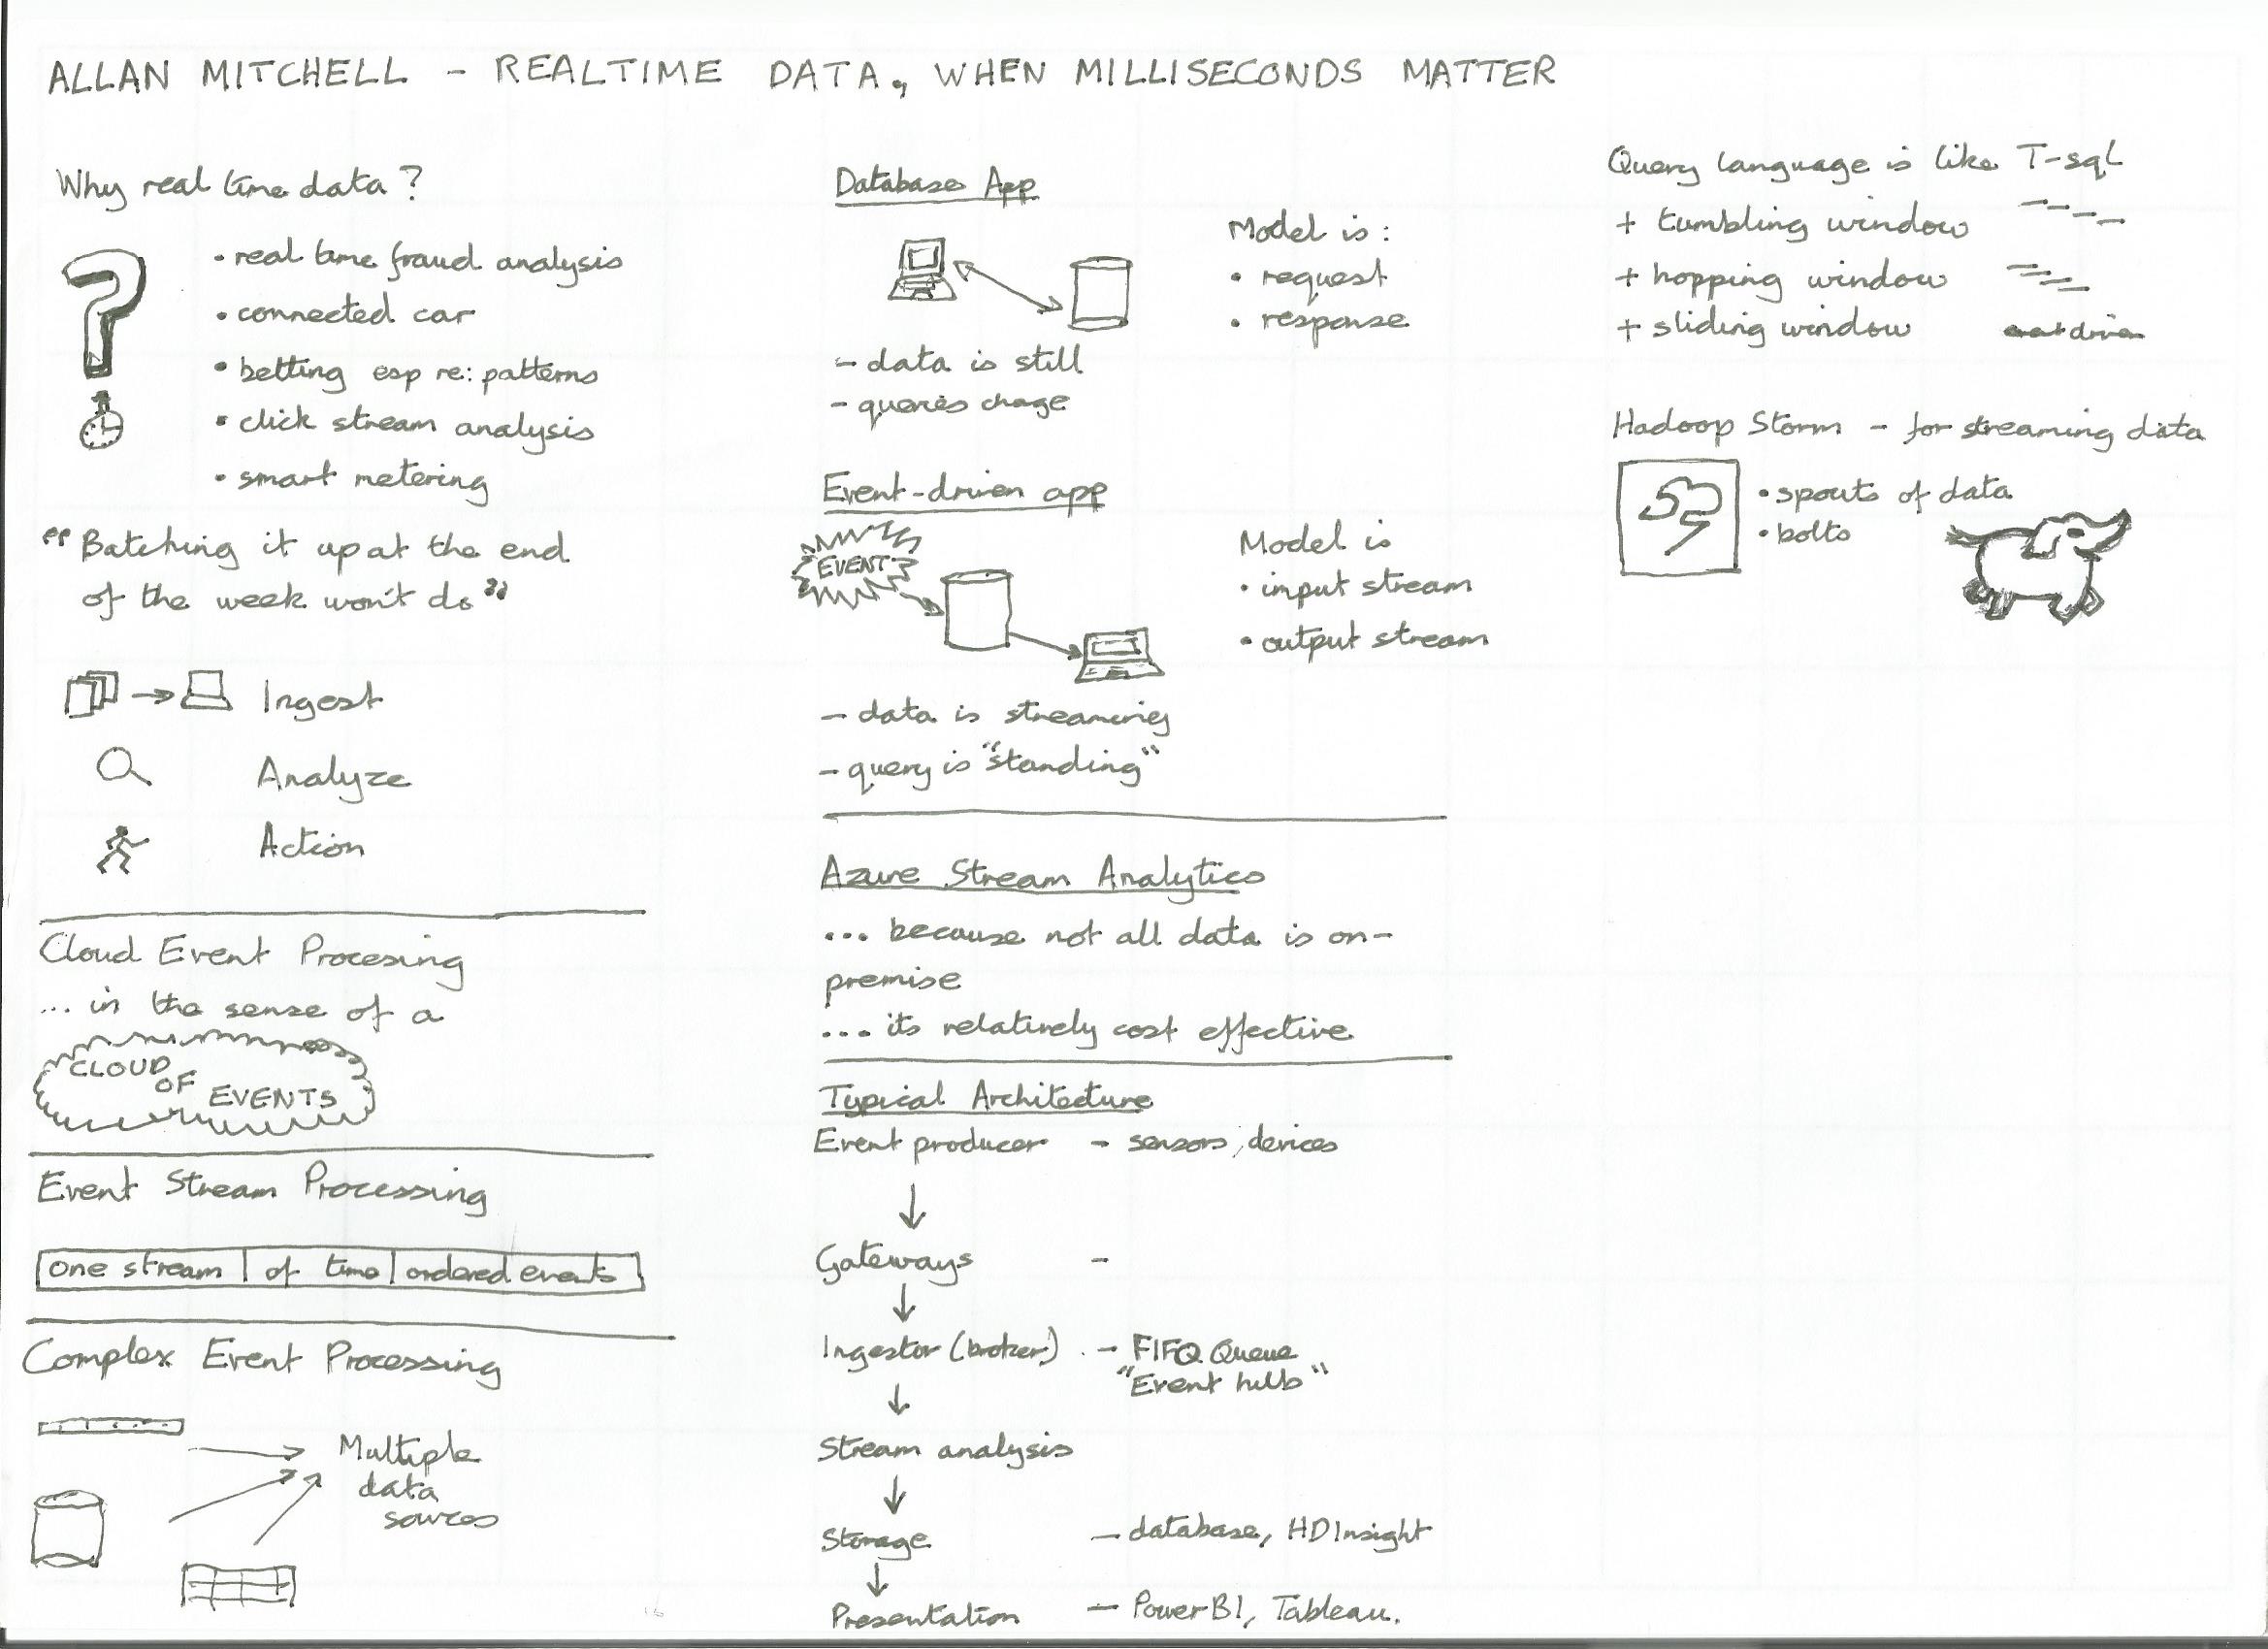 ALLAN MITCHELL - REALTIME DATA, WHEN MILLISECONDS MATTER
Why real time data?
• real time fraud analysis
• connected car
• betting esp re: patterns
• click stream analysis
• smart metering
"Batching it up at the end
of the week won't do"
Ingest
Analyze
Action
Cloud Event Procesing
... in the sense of a
CLOUD
OF
EVENTS
Event Stream Processing
one stream of time ordered events
Complex Event Processing
Multiple
data
sources
Database App
Model is:
• request
• response
- data is still
- queries chage
Event-driven app
EVENT
Model is
• input stream
• output stream
- data is streaming
- query is "standing"
Azure Stream Analytics
... because not all data is on-
premise
... its relatively cost effective
Typical Architecture
Event producer - sensors, devices
Gateways -
Ingestor (broker) - FIFO Queue
"Event hub"
Stream analysis
Storage - database, HDInsight
Presentation - PowerBI, Tableau.
Query language is like T-sql
+ tumbling window
+ hopping window
+ sliding window event driven
Hadoop Storm - for streaming data
• spouts of data
• bolts